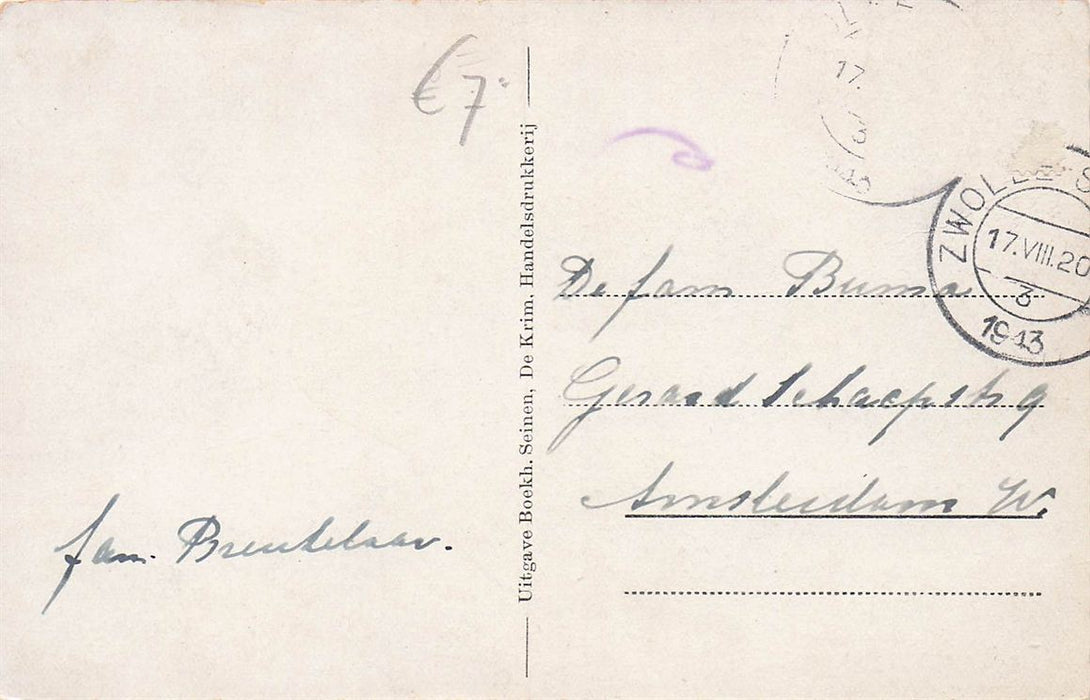 €7
Uitgave Boekh. Seinen, De Krim. Handelsdrukkerij
17.
3
ZWOLLE S
17.VIII.20
3
1943
De fam Buma
Gerard Schaepstr 9
Amsterdam W.
fam. Breukelaar.